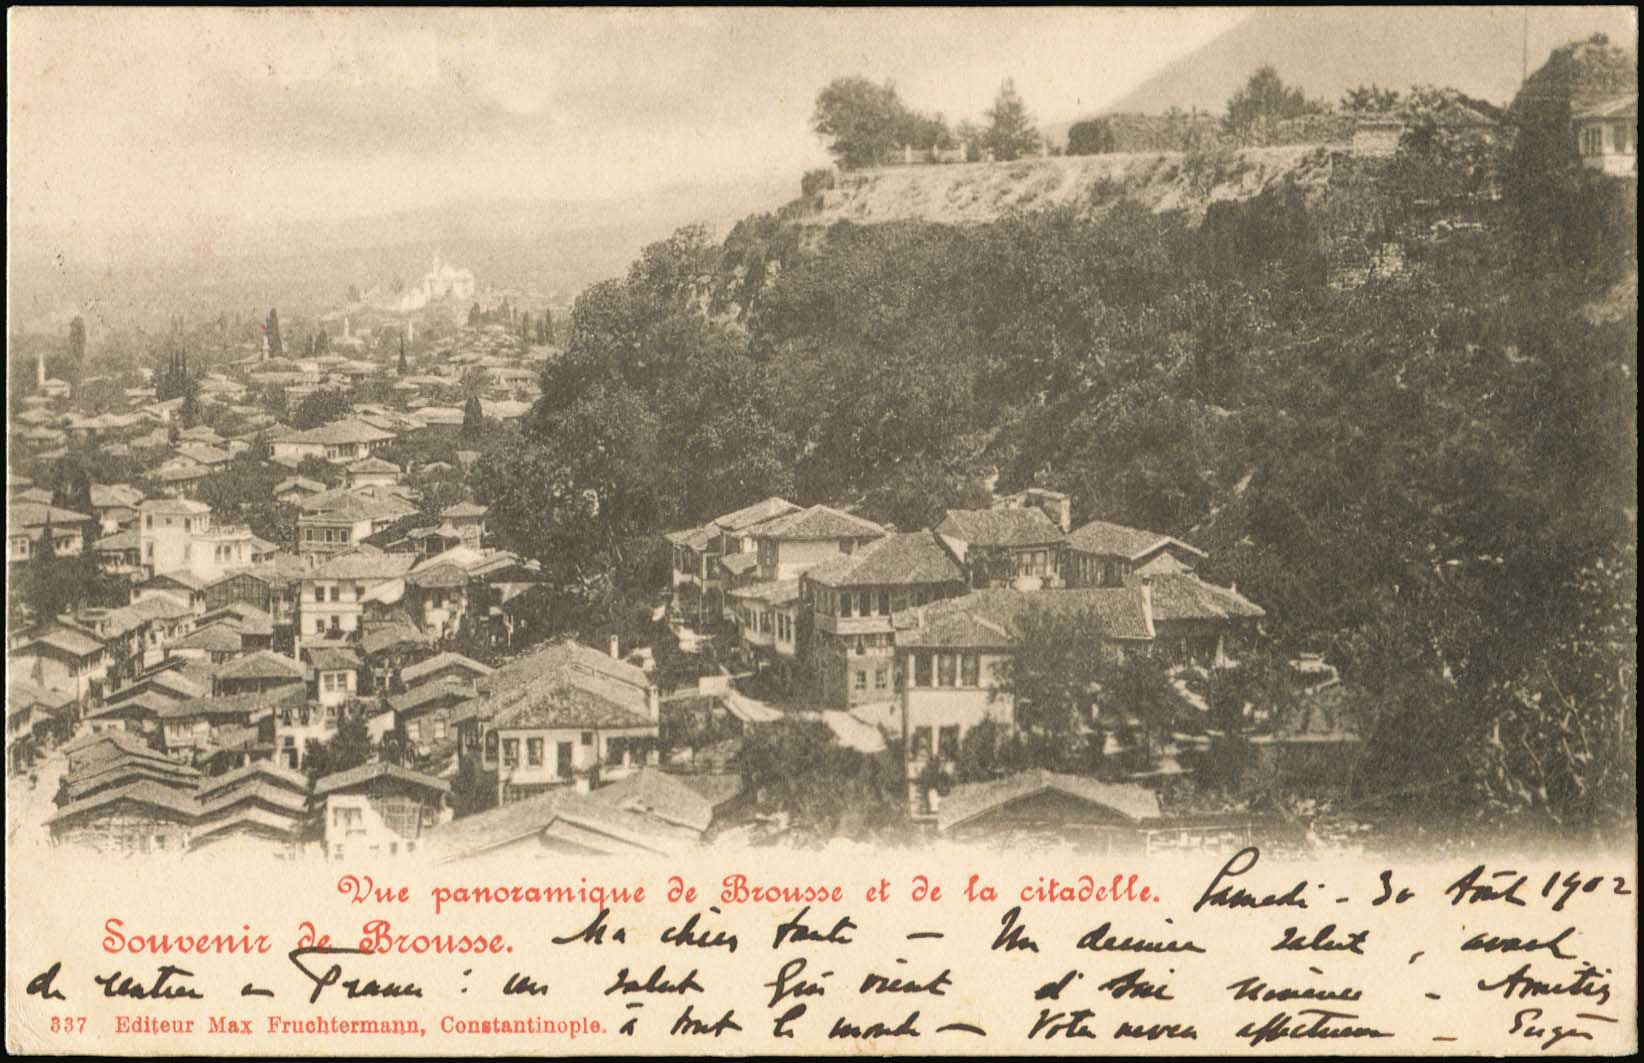 Vue panoramique de Brousse et de la citadelle. Samedi - 30 Août 1902
Souvenir de Brousse. Ma chère tante — Un dernier salut, avant
de rentrer en France : un salut qui vient d'Asie mineure - Amitiés
337 Editeur Max Fruchtermann, Constantinople. à tout le monde — Votre neveu affectueux -